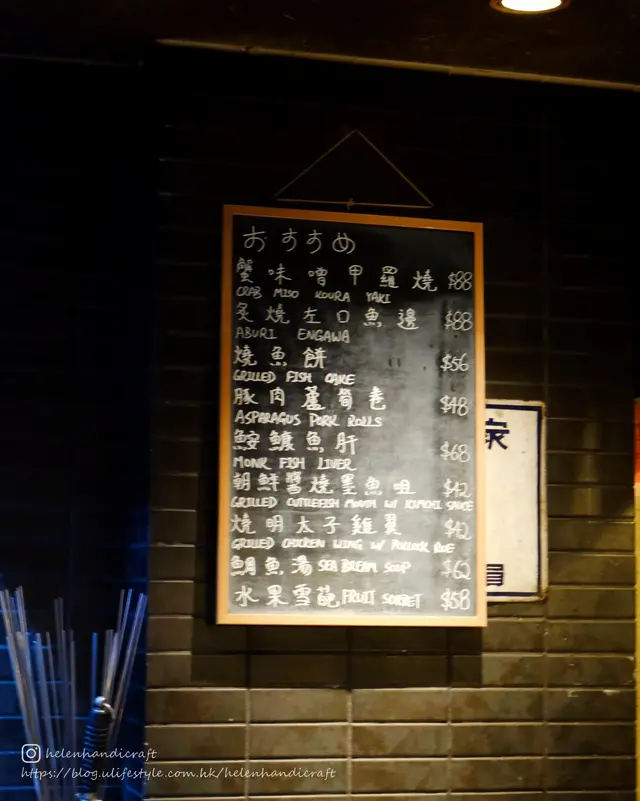 おすすめ
蟹味噌甲羅燒 $88
CRAB MISO KOURA YAKI
炙燒左口魚邊 $88
ABURI ENGAWA
燒魚餅 $56
GRILLED FISH CAKE
豚肉蘆筍卷 $48
ASPARAGUS PORK ROLLS
鮟鱇魚肝 $68
MONK FISH LIVER
朝鮮醬燒墨魚咀 $42
GRILLED CUTTLEFISH MOUTH W/ KIMCHI SAUCE
燒明太子雞翼 $42
GRILLED CHICKEN WING W/ POLLOCK ROE
鯛魚湯 SEA BREAM SOUP $62
水果雪葩 FRUIT SORBET $58
員
helenhandicraft
https://blog.ulifestyle.com.hk/helenhandicraft